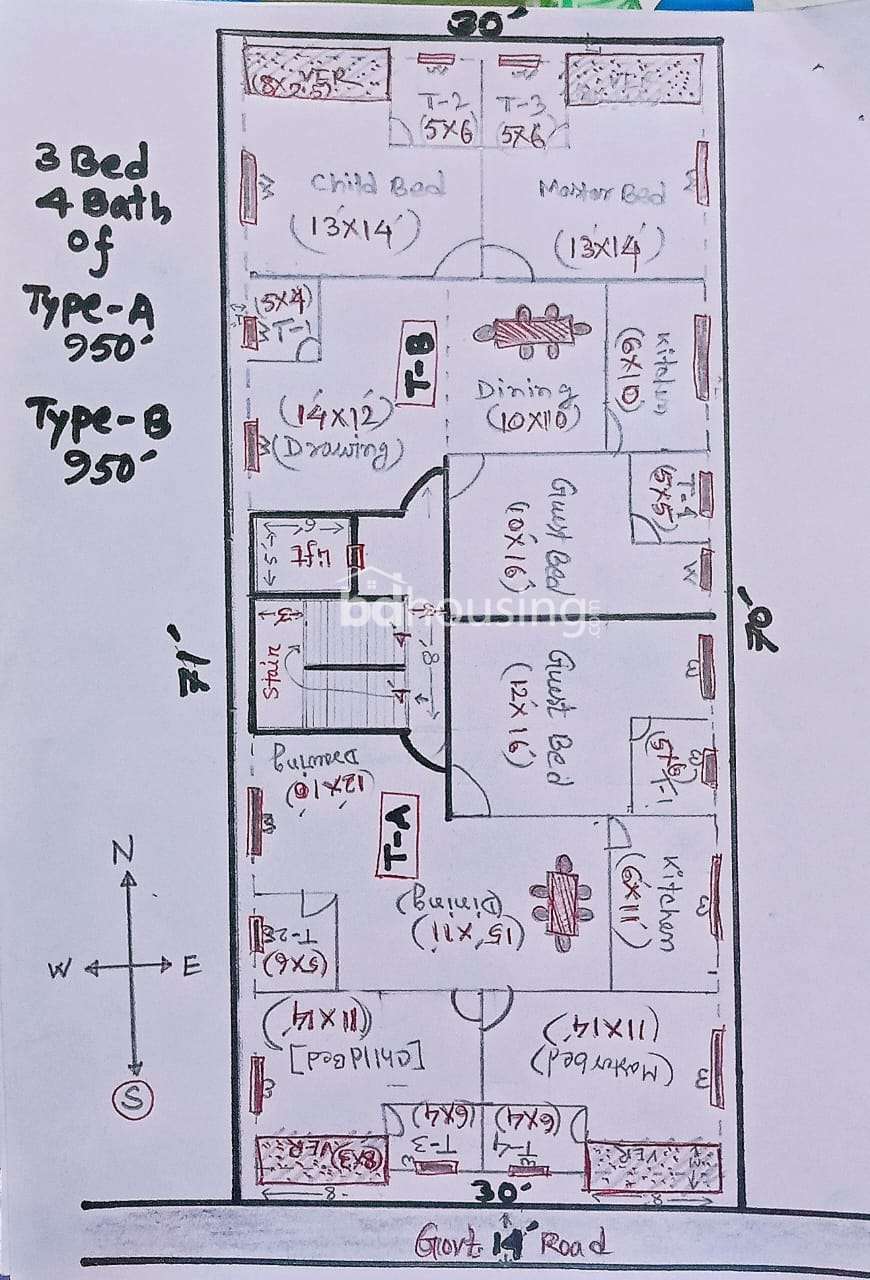 30´
VER
(8X2.5)
T-2
(5X6)
T-3
(5X6)
W
W
3 Bed
4 Bath
of
Type-A
950´
Type-B
950´
Child Bed
(13´X14´)
Master Bed
(13´X14´)
W
(5X4)
T-1
W
T-B
Dining
(10X10)
Kitchen
(6X10)
(14´X12´)
(Drawing)
W
T-4
(5X5)
W
Guest Bed
(10´X16´)
6´
5´
Lift
bdhousing.com
3´
Stair
8´
71´
70´
Guest Bed
(12´X16´)
W
T-1
(5X6)
W
Drawing
W
T-A
(Dining)
(15´X11´)
Kitchen
(6´X11´)
W
T-2
(5X6)
W
N
W E
S
(11X14´)
[Child Bed]
(11X14´)
(Master bed)
W
W
(6X4)
T-3
(6X4)
T-4
W
W
VER
(8X3)
VER
8
8
30´
Govt. 14´ Road